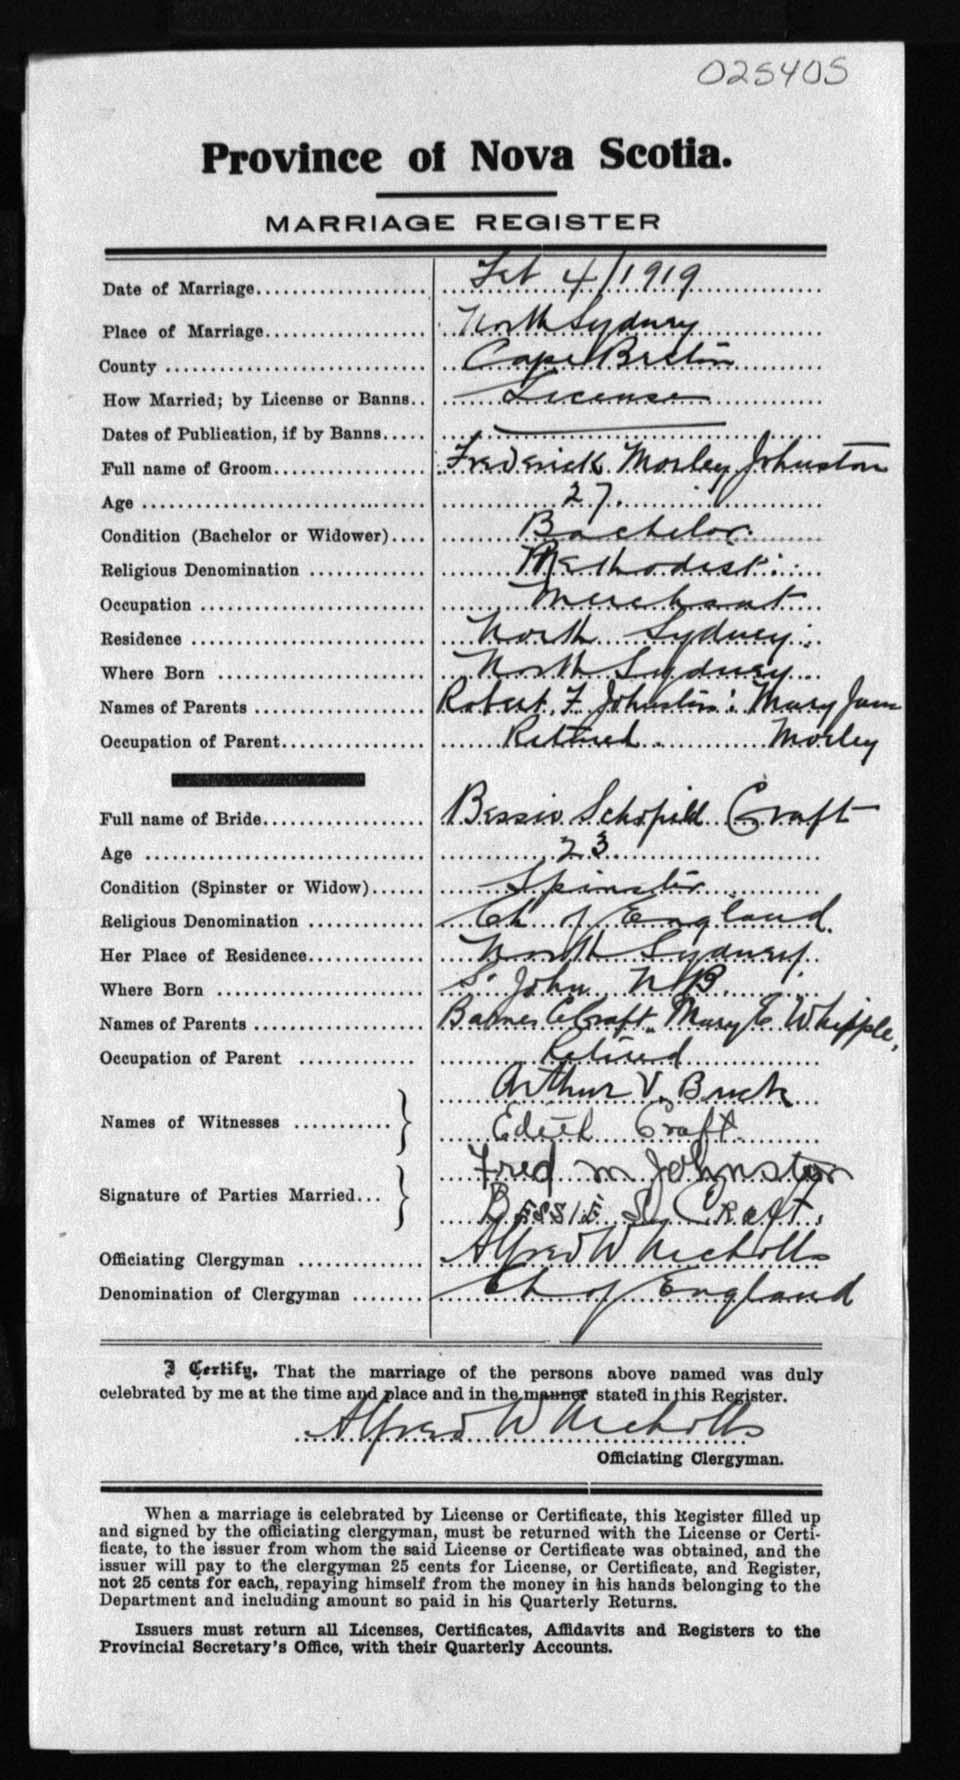 025405
Province of Nova Scotia.
MARRIAGE REGISTER
Date of Marriage.................... Feb 4/1919
Place of Marriage................... North Sydney
County ............................. Cape Breton
How Married; by License or Banns.. License
Dates of Publication, if by Banns.....
Full name of Groom.................. Frederick Morley Johnston
Age ................................ 27.
Condition (Bachelor or Widower).... Bachelor.
Religious Denomination ............. Methodist.
Occupation ......................... Merchant
Residence .......................... North Sydney.
Where Born ......................... North Sydney
Names of Parents ................... Robert F Johnston : Mary Jane
Occupation of Parent................. Retired Morley
Full name of Bride................... Bessie Schofield Craft
Age ................................ 23.
Condition (Spinster or Widow)...... Spinster
Religious Denomination ............. Ch of England.
Her Place of Residence.............. North Sydney.
Where Born ......................... St John N.B.
Names of Parents ................... Craft. Mary E Whipple,
Occupation of Parent ............... Retired
Names of Witnesses ............ Arthur V. Buck
Edith Craft.
Signature of Parties Married... Fred M Johnston
Bessie S. Craft.
Officiating Clergyman .............. Alfred W Nicholls
Denomination of Clergyman ........ Ch of England
I Certify, That the marriage of the persons above named was duly
celebrated by me at the time and place and in the manner stated in this Register.
Alfred W Nicholls
Officiating Clergyman.
When a marriage is celebrated by License or Certificate, this Register filled up
and signed by the officiating clergyman, must be returned with the License or Certi-
ficate, to the issuer from whom the said License or Certificate was obtained, and the
issuer will pay to the clergyman 25 cents for License, or Certificate, and Register,
not 25 cents for each, repaying himself from the money in his hands belonging to the
Department and including amount so paid in his Quarterly Returns.
Issuers must return all Licenses, Certificates, Affidavits and Registers to the
Provincial Secretary's Office, with their Quarterly Accounts.